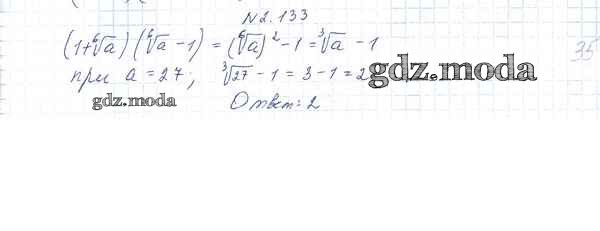 N 2.133
(1+⁶√a)(⁶√a -1) = (⁶√a)² -1 = ³√a -1
при a = 27; ³√27 -1 = 3 -1 = 2
gdz.moda
gdz.moda
Ответ: 2
35